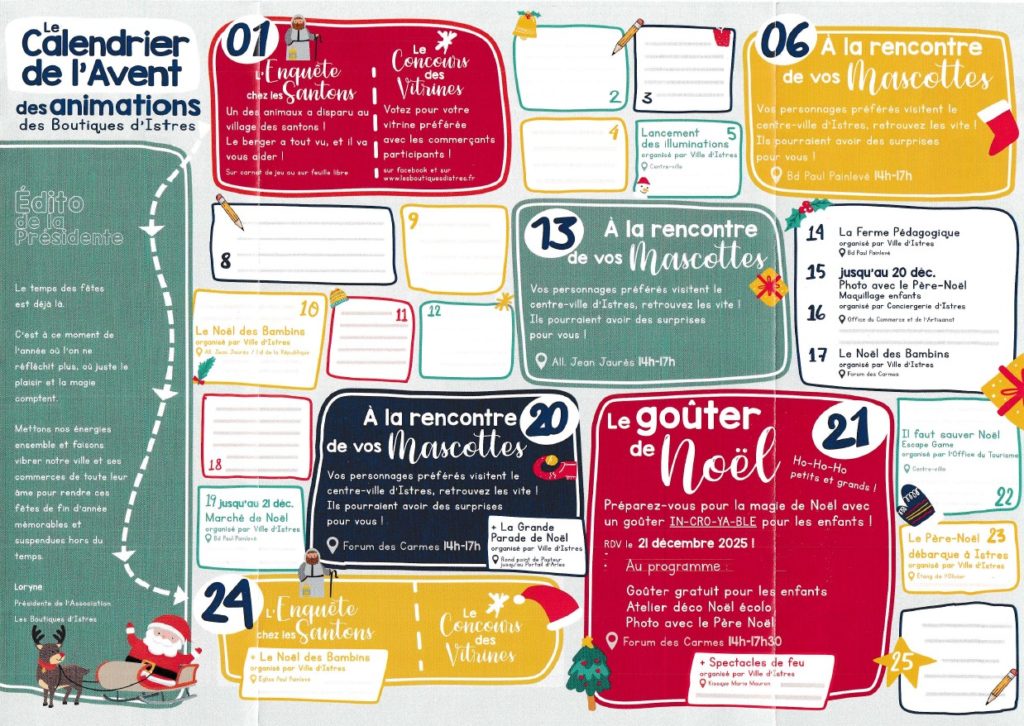 Le
Calendrier
de l'Avent
des animations
des Boutiques d'Istres
Édito
de la
Présidente
Le temps des fêtes
est déjà là.
C'est à ce moment de
l'année où l'on ne
réfléchit plus, où juste le
plaisir et la magie
comptent.
Mettons nos énergies
ensemble et faisons
vibrer notre ville et ses
commerces de toute leur
âme pour rendre ces
fêtes de fin d'année
mémorables et
suspendues hors du
temps.
Loryne
Présidente de l'Association
Les Boutiques d'Istres
01
L'Enquête
chez les Santons
Un des animaux a disparu au
village des santons !
Le berger a tout vu, et il va
vous aider !
Sur carnet de jeu ou sur feuille libre
Le
Concours
des
Vitrines
Votez pour votre
vitrine préférée
avec les commerçants
participants !
sur facebook et sur
www.lesboutiquesdistres.fr
2
3
4
5
Lancement
des illuminations
organisé par Ville d'Istres
Centre-ville
06
À la rencontre
de vos Mascottes
Vos personnages préférés visitent le
centre-ville d'Istres, retrouvez les vite !
Ils pourraient avoir des surprises
pour vous !
Bd Paul Painlevé 14h-17h
8
9
10
Le Noël des Bambins
organisé par Ville d'Istres
All. Jean Jaurès / 1 d de la République
11
12
13
À la rencontre
de vos Mascottes
Vos personnages préférés visitent le
centre-ville d'Istres, retrouvez les vite !
Ils pourraient avoir des surprises
pour vous !
All. Jean Jaurès 14h-17h
14 La Ferme Pédagogique
organisé par Ville d'Istres
Bd Paul Painlevé
15 jusqu'au 20 déc.
Photo avec le Père-Noël
Maquillage enfants
organisé par Conciergerie d'Istres
16 Office du Commerce et de l'Artisanat
17 Le Noël des Bambins
organisé par Ville d'Istres
Forum des Carmes
18
19 jusqu'au 21 déc.
Marché de Noël
organisé par Ville d'Istres
Bd Paul Painlevé
20
À la rencontre
de vos Mascottes
Vos personnages préférés visitent le
centre-ville d'Istres, retrouvez les vite !
Ils pourraient avoir des surprises
pour vous !
Forum des Carmes 14h-17h
+ La Grande
Parade de Noël
organisé par Ville d'Istres
Rond point de Pasteur
jusqu'au Portail d'Arles
21
Le goûter
de Noël
Ho-Ho-Ho
petits et grands !
Préparez-vous pour la magie de Noël avec
un goûter IN-CRO-YA-BLE pour les enfants !
RDV le 21 décembre 2025 !
Au programme
Goûter gratuit pour les enfants
Atelier déco Noël écolo
Photo avec le Père Noël
Forum des Carmes 14h-17h30
+ Spectacles de feu
organisé par Ville d'Istres
Kiosque Marie Mauron
Il faut sauver Noël
Escape Game
organisé par l'Office du Tourisme
Centre-ville
22
Le Père-Noël 23
débarque à Istres
organisé par Ville d'Istres
Etang de l'Olivier
24
L'Enquête
chez les Santons
Le
Concours
des
Vitrines
+ Le Noël des Bambins
organisé par Ville d'Istres
Eglise Paul Painlevé
25